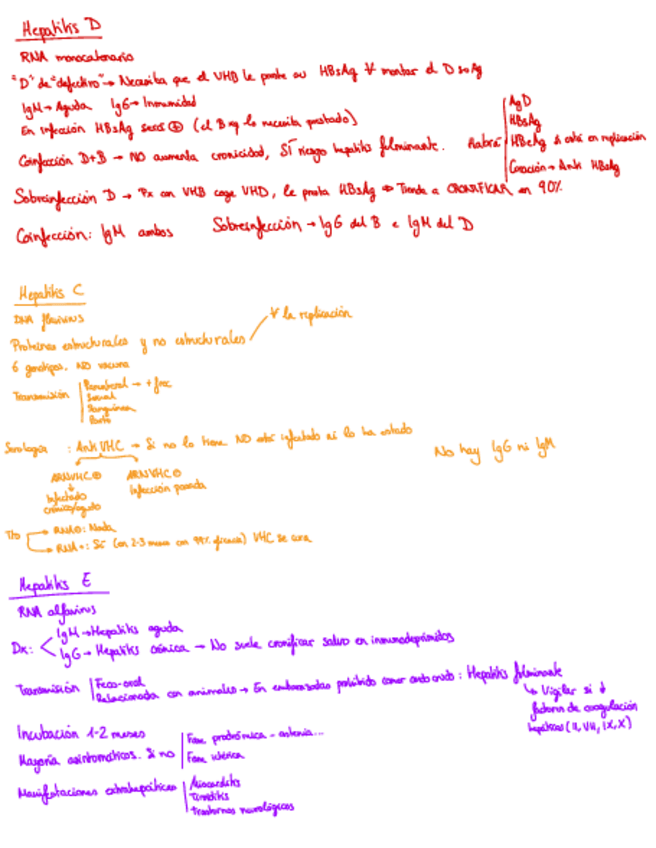 Hepatitis D
RNA monocatenario
"D" de "defectivo" → Necesita que el VHB le preste su HBsAg ∀ montar el D so Ag
IgM → Aguda IgG → Inmunidad
En infección HBsAg será ⊕ (el B se lo necesita prestado)
Coinfección D+B → NO aumenta cronicidad, SÍ riesgo hepatitis fulminante. Habrá
AgD
HBsAg
HBeAg si está en replicación
Curación → Anti HBsAg
Sobreinfección D → Px con VHB coge VHD, le presta HBsAg ⇒ Tiende a CRONIFICAR en 90%
Coinfección: IgM ambos Sobreinfección → IgG del B e IgM del D
Hepatitis C
flavivirus
Proteínas estructurales y no estructurales
∀ la replicación
6 genotipos. NO vacuna
Transmisión
Parenteral → + frec
Sexual
Sanguínea
Parto
Serología : Anti VHC → Si no lo tiene NO está infectado ni lo ha estado
No hay IgG ni IgM
ARNVHC ⊕ ARNVHC ⊖
Infectado
crónico/agudo
Infección pasada
Tto
RNA ⊖: Nada
RNA +: Sí (en 2-3 meses con 99% eficacia) VHC se cura
Hepatitis E
RNA alfavirus
Dx:
IgM → Hepatitis aguda
IgG → Hepatitis crónica → No suele cronificar salvo en inmunodeprimidos
Transmisión
Feco-oral
Relacionada con animales → En embarazadas prohibido comer cerdo crudo : Hepatitis fulminante
↳ Vigilar si ↓
factores de coagulación
hepáticos (II, VII, IX, X)
Incubación 1-2 meses
Mayoría asintomáticos. Si no
Fase prodrómica - astenia...
Fase ictérica
Manifestaciones extrahepáticas
Miocarditis
Tiroiditis
Trastornos neurológicos